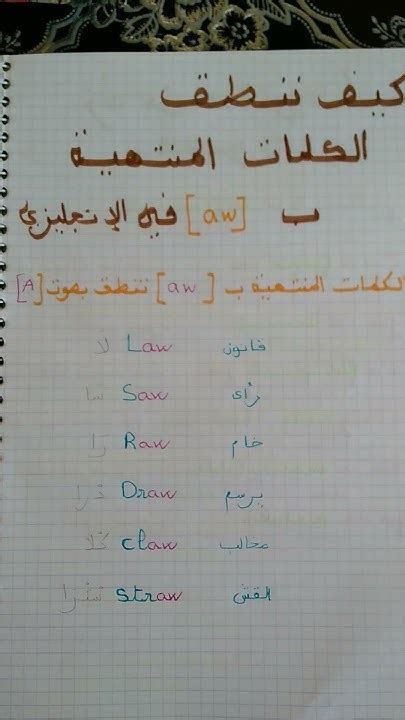 كيف ننطق
الكلمات المنتهية
ب [aw] في الإنجليزي
الكلمات المنتهية ب [aw] تنطق بصوت [A]
قانون Law لا
رأى Saw سا
خام Raw رَا
يرسم Draw دْرا
مخالب claw كْلا
القش straw سْترا